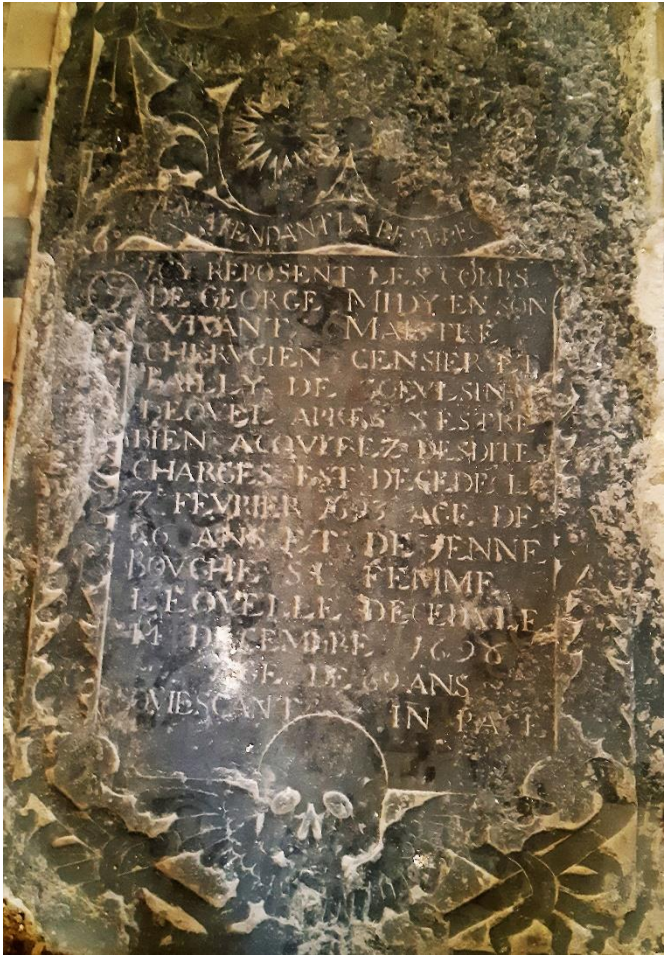 EN ATENDANT LA
ICY REPOSENT LES CORPS
DE GEORGE MIDY EN SON
VIVANT MAISTRE
CHERVGIEN CENSIER ET
BAILLY DE
LEQVEL APRES S ESTRE
BIEN ACQVITEZ DESDITES
CHARGES EST DECEDE LE
7E FEVRIER 1693 AGE DE
66 ANS ET DE JENNE
BOVCHE SA FEMME
LEQVELLE DECEDA LE
14 DECEMBRE 1698
AGE DE 69 ANS
QVIESCANT IN PACE